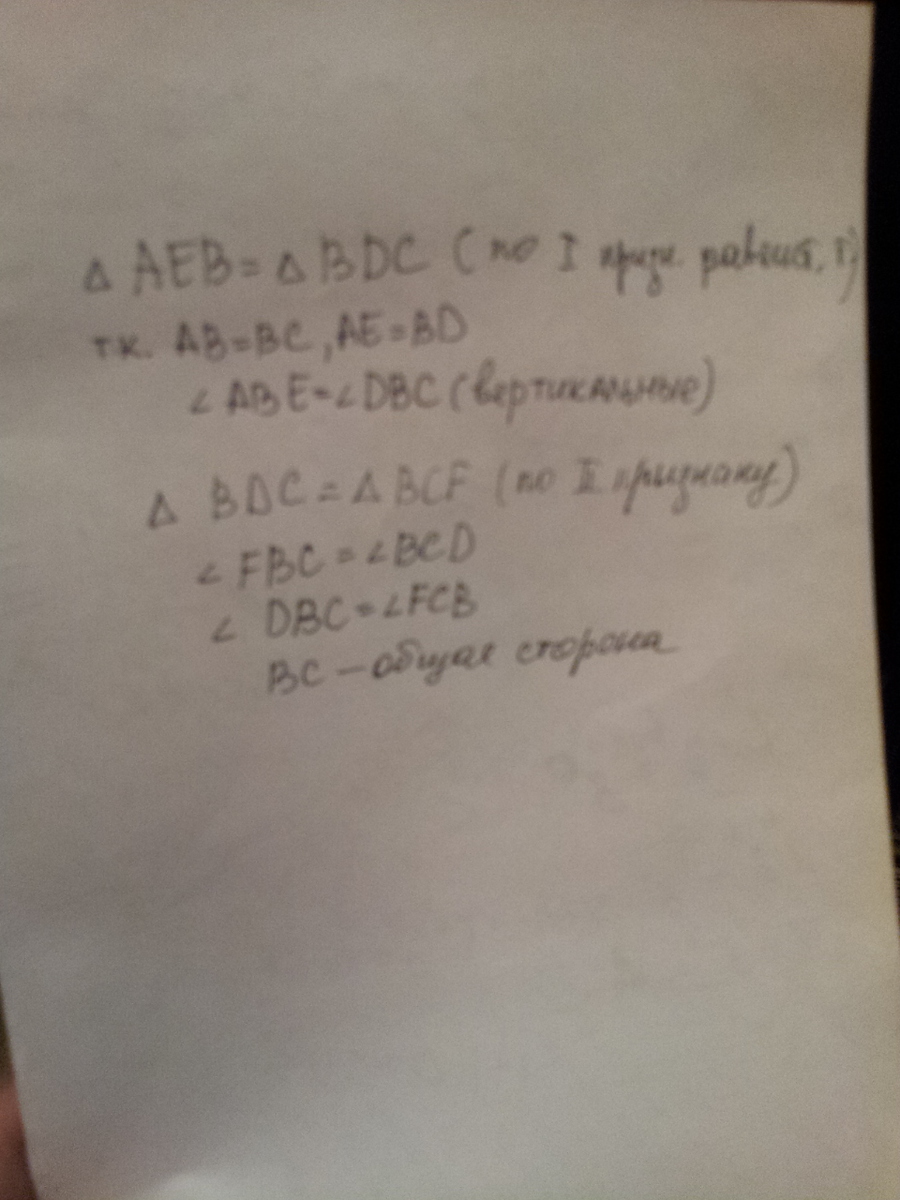 Δ AEB = Δ BDC (по I призн. равенст. Г)
т.к. AB=BC, AE=BD
∠ ABE=∠DBC (вертикальные)
Δ BDC = Δ BCF (по II признаку)
∠ FBC = ∠BCD
∠ DBC = ∠FCB
BC – общая сторона